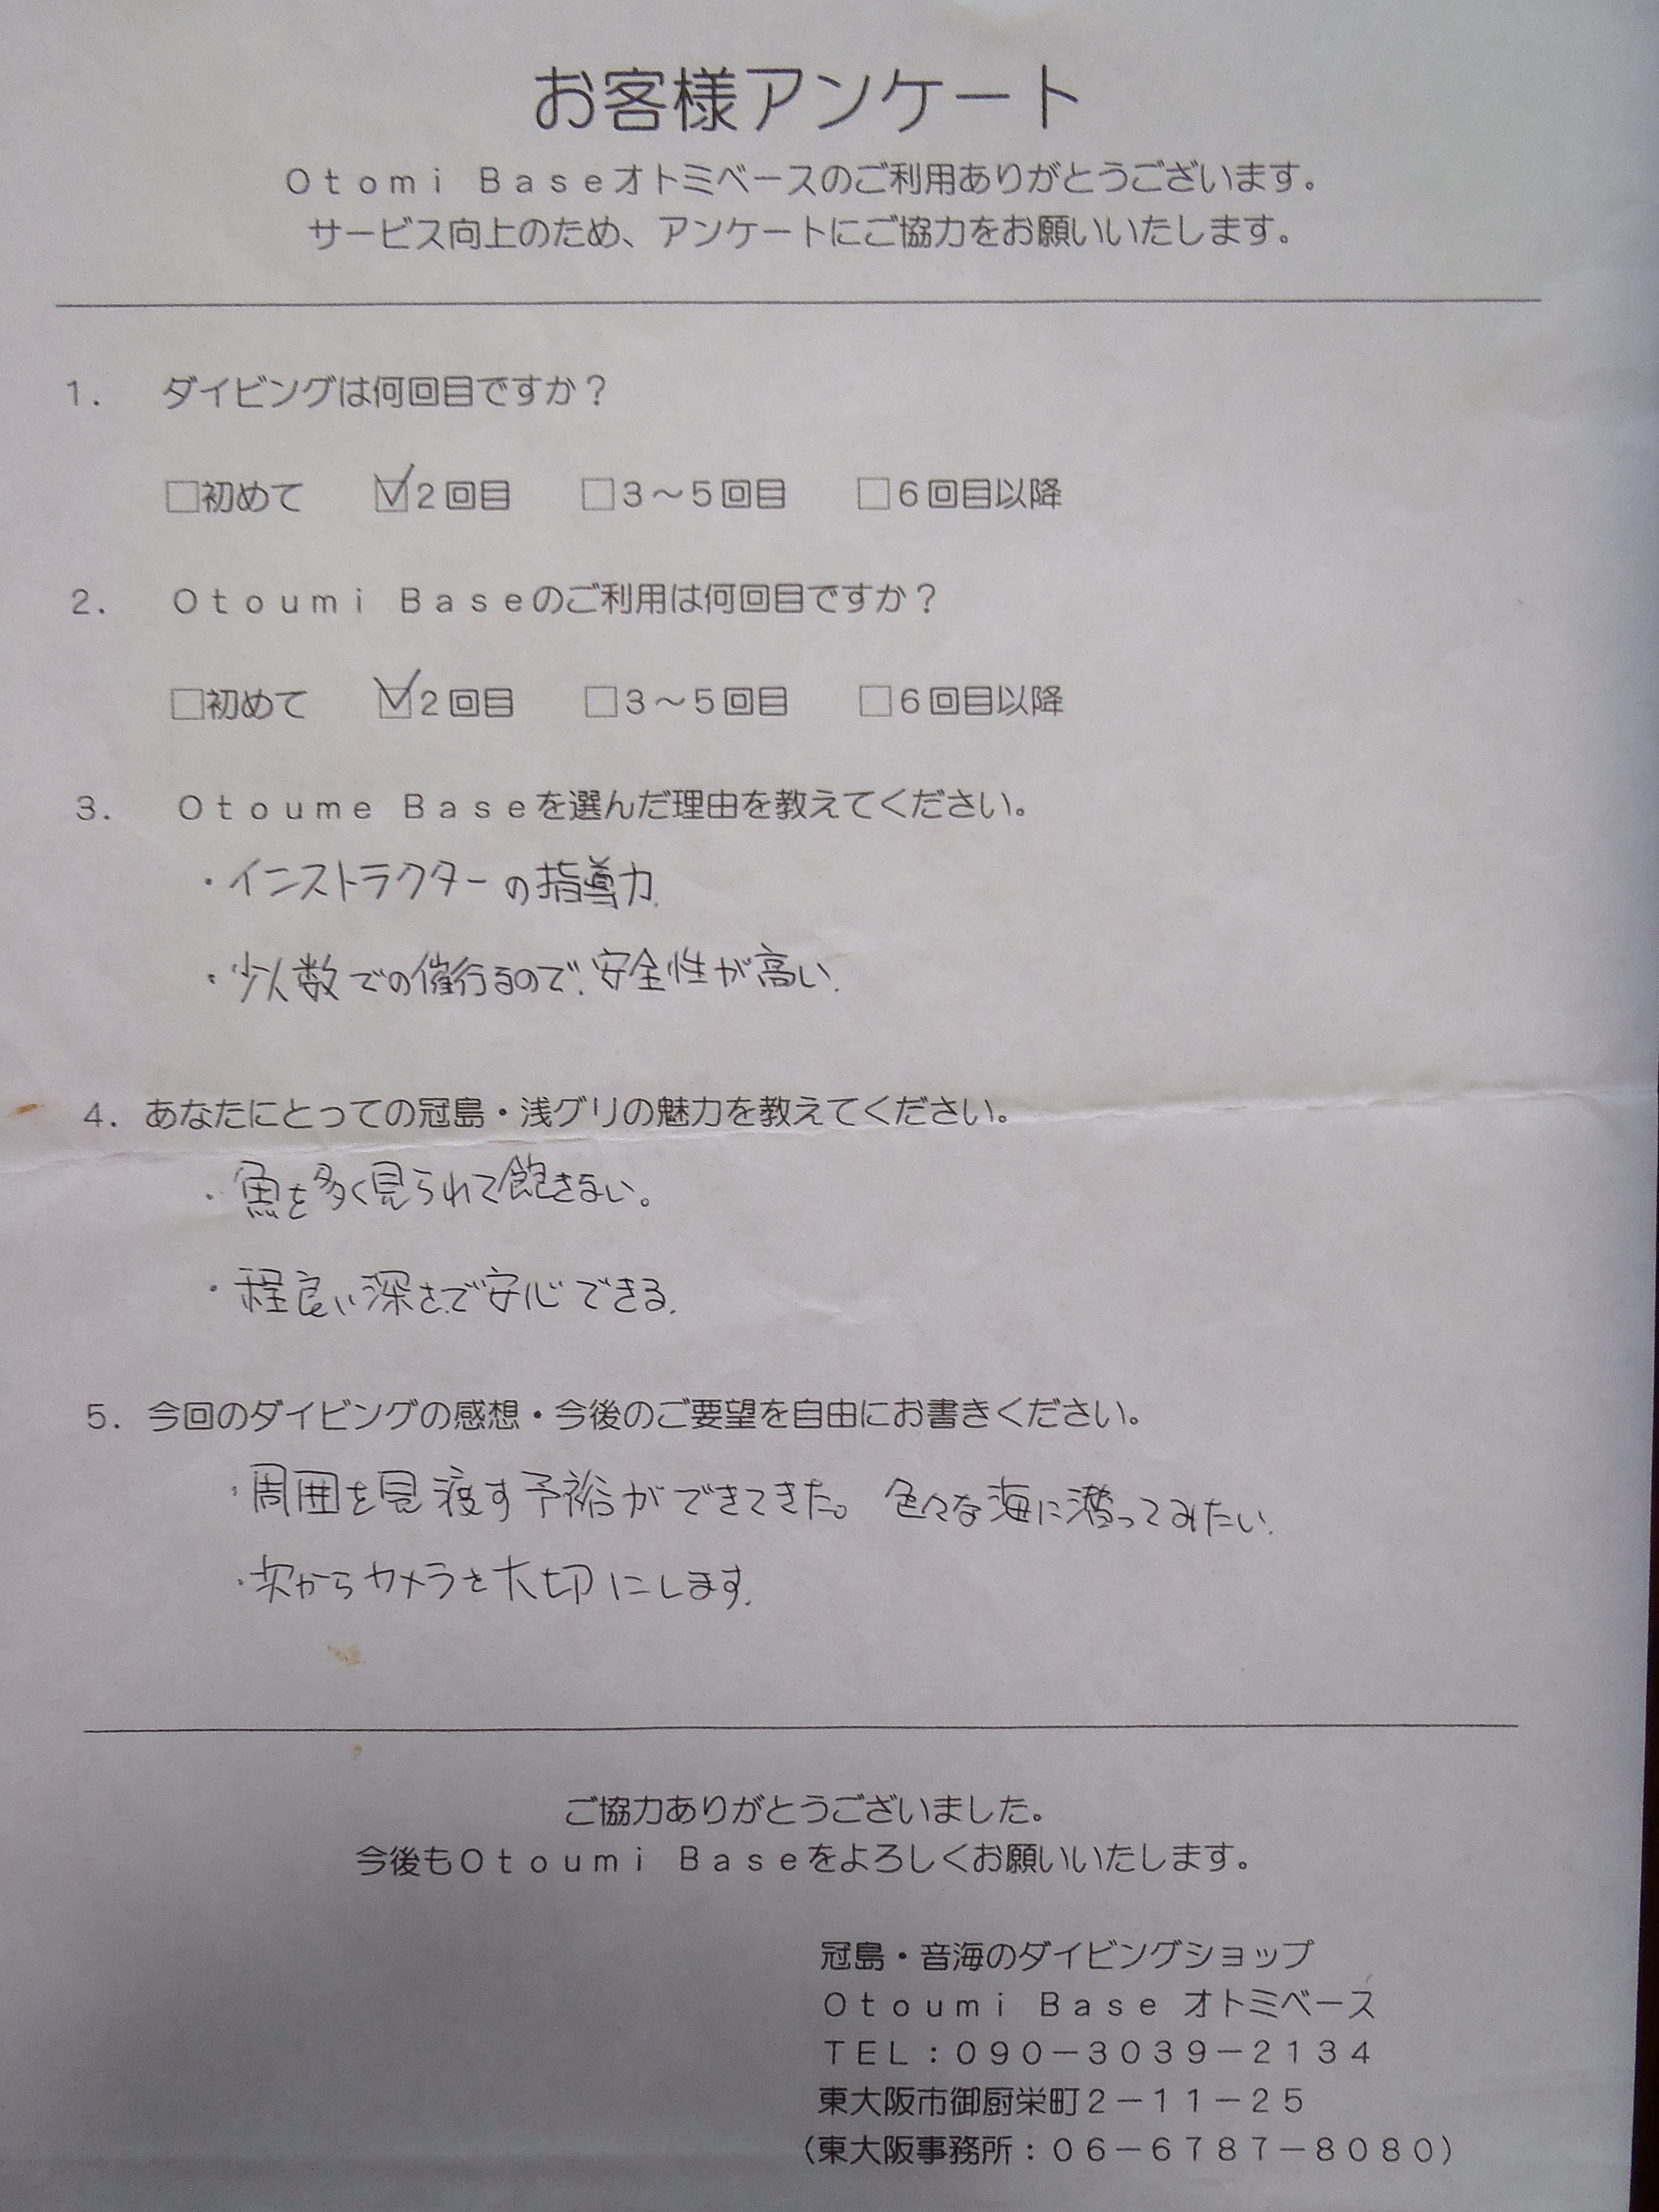 お客様アンケート
Otomi Baseオトミベースのご利用ありがとうございます。
サービス向上のため、アンケートにご協力をお願いいたします。
1. ダイビングは何回目ですか？
□初めて ☑2回目 □3～5回目 □6回目以降
2. Otoumi Baseのご利用は何回目ですか？
□初めて ☑2回目 □3～5回目 □6回目以降
3. Otoume Baseを選んだ理由を教えてください。
・インストラクターの指導力.
・少人数での催行るので、安全性が高い.
4. あなたにとっての冠島・浅グリの魅力を教えてください。
・魚を多く見られて飽きない。
・程良い深さで安心できる.
5. 今回のダイビングの感想・今後のご要望を自由にお書きください。
・周囲を見渡す予裕ができてきた。色々な海に潜ってみたい.
・次からカメラを大切にします.
ご協力ありがとうございました。
今後もOtoumi Baseをよろしくお願いいたします。
冠島・音海のダイビングショップ
Otoumi Base オトミベース
TEL：090－3039－2134
東大阪市御厨栄町2－11－25
（東大阪事務所：06－6787－8080）